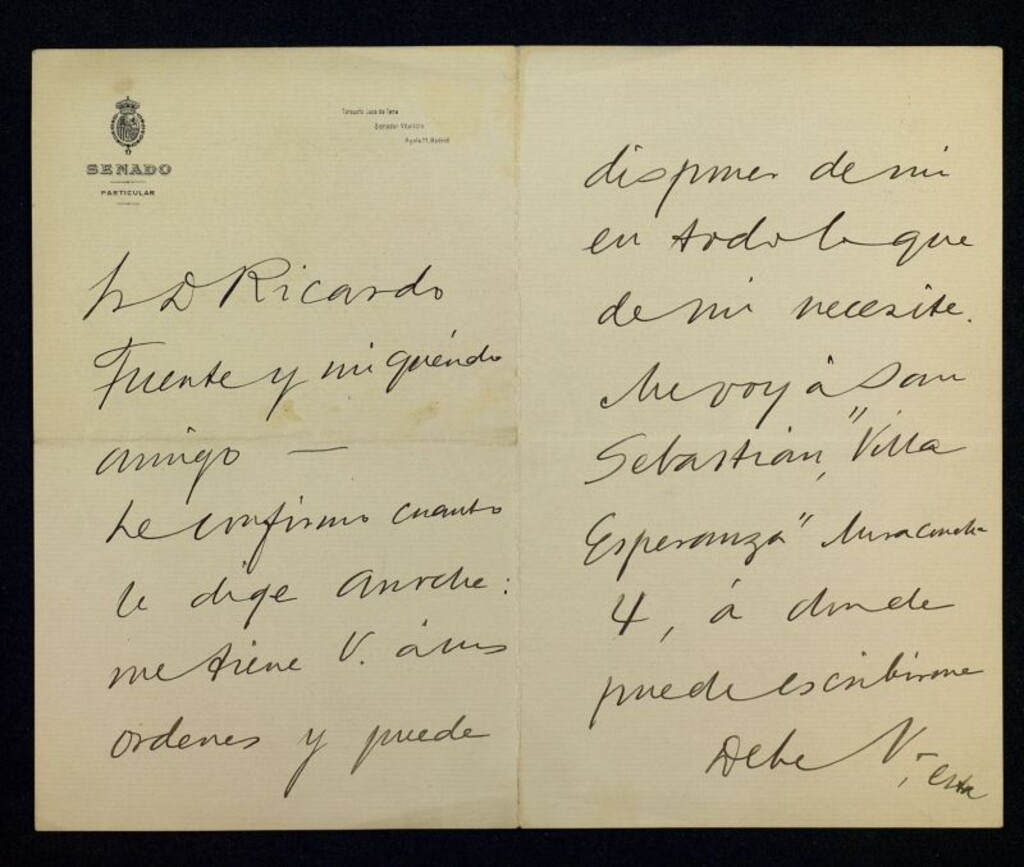 SENADO
PARTICULAR
Torcuato Luca de Tena
Senador Vitalicio
Madrid
Sr D Ricardo
Fuente y mi querido
amigo —
Le confirmo cuanto
le dige anoche:
me tiene V. á sus
ordenes y puede
disponer de mi
en todo lo que
de mi necesite.
Me voy á San
Sebastian, "Villa
Esperanza" Miraconcha
4, á donde
puede escribirme
Debe V, esta